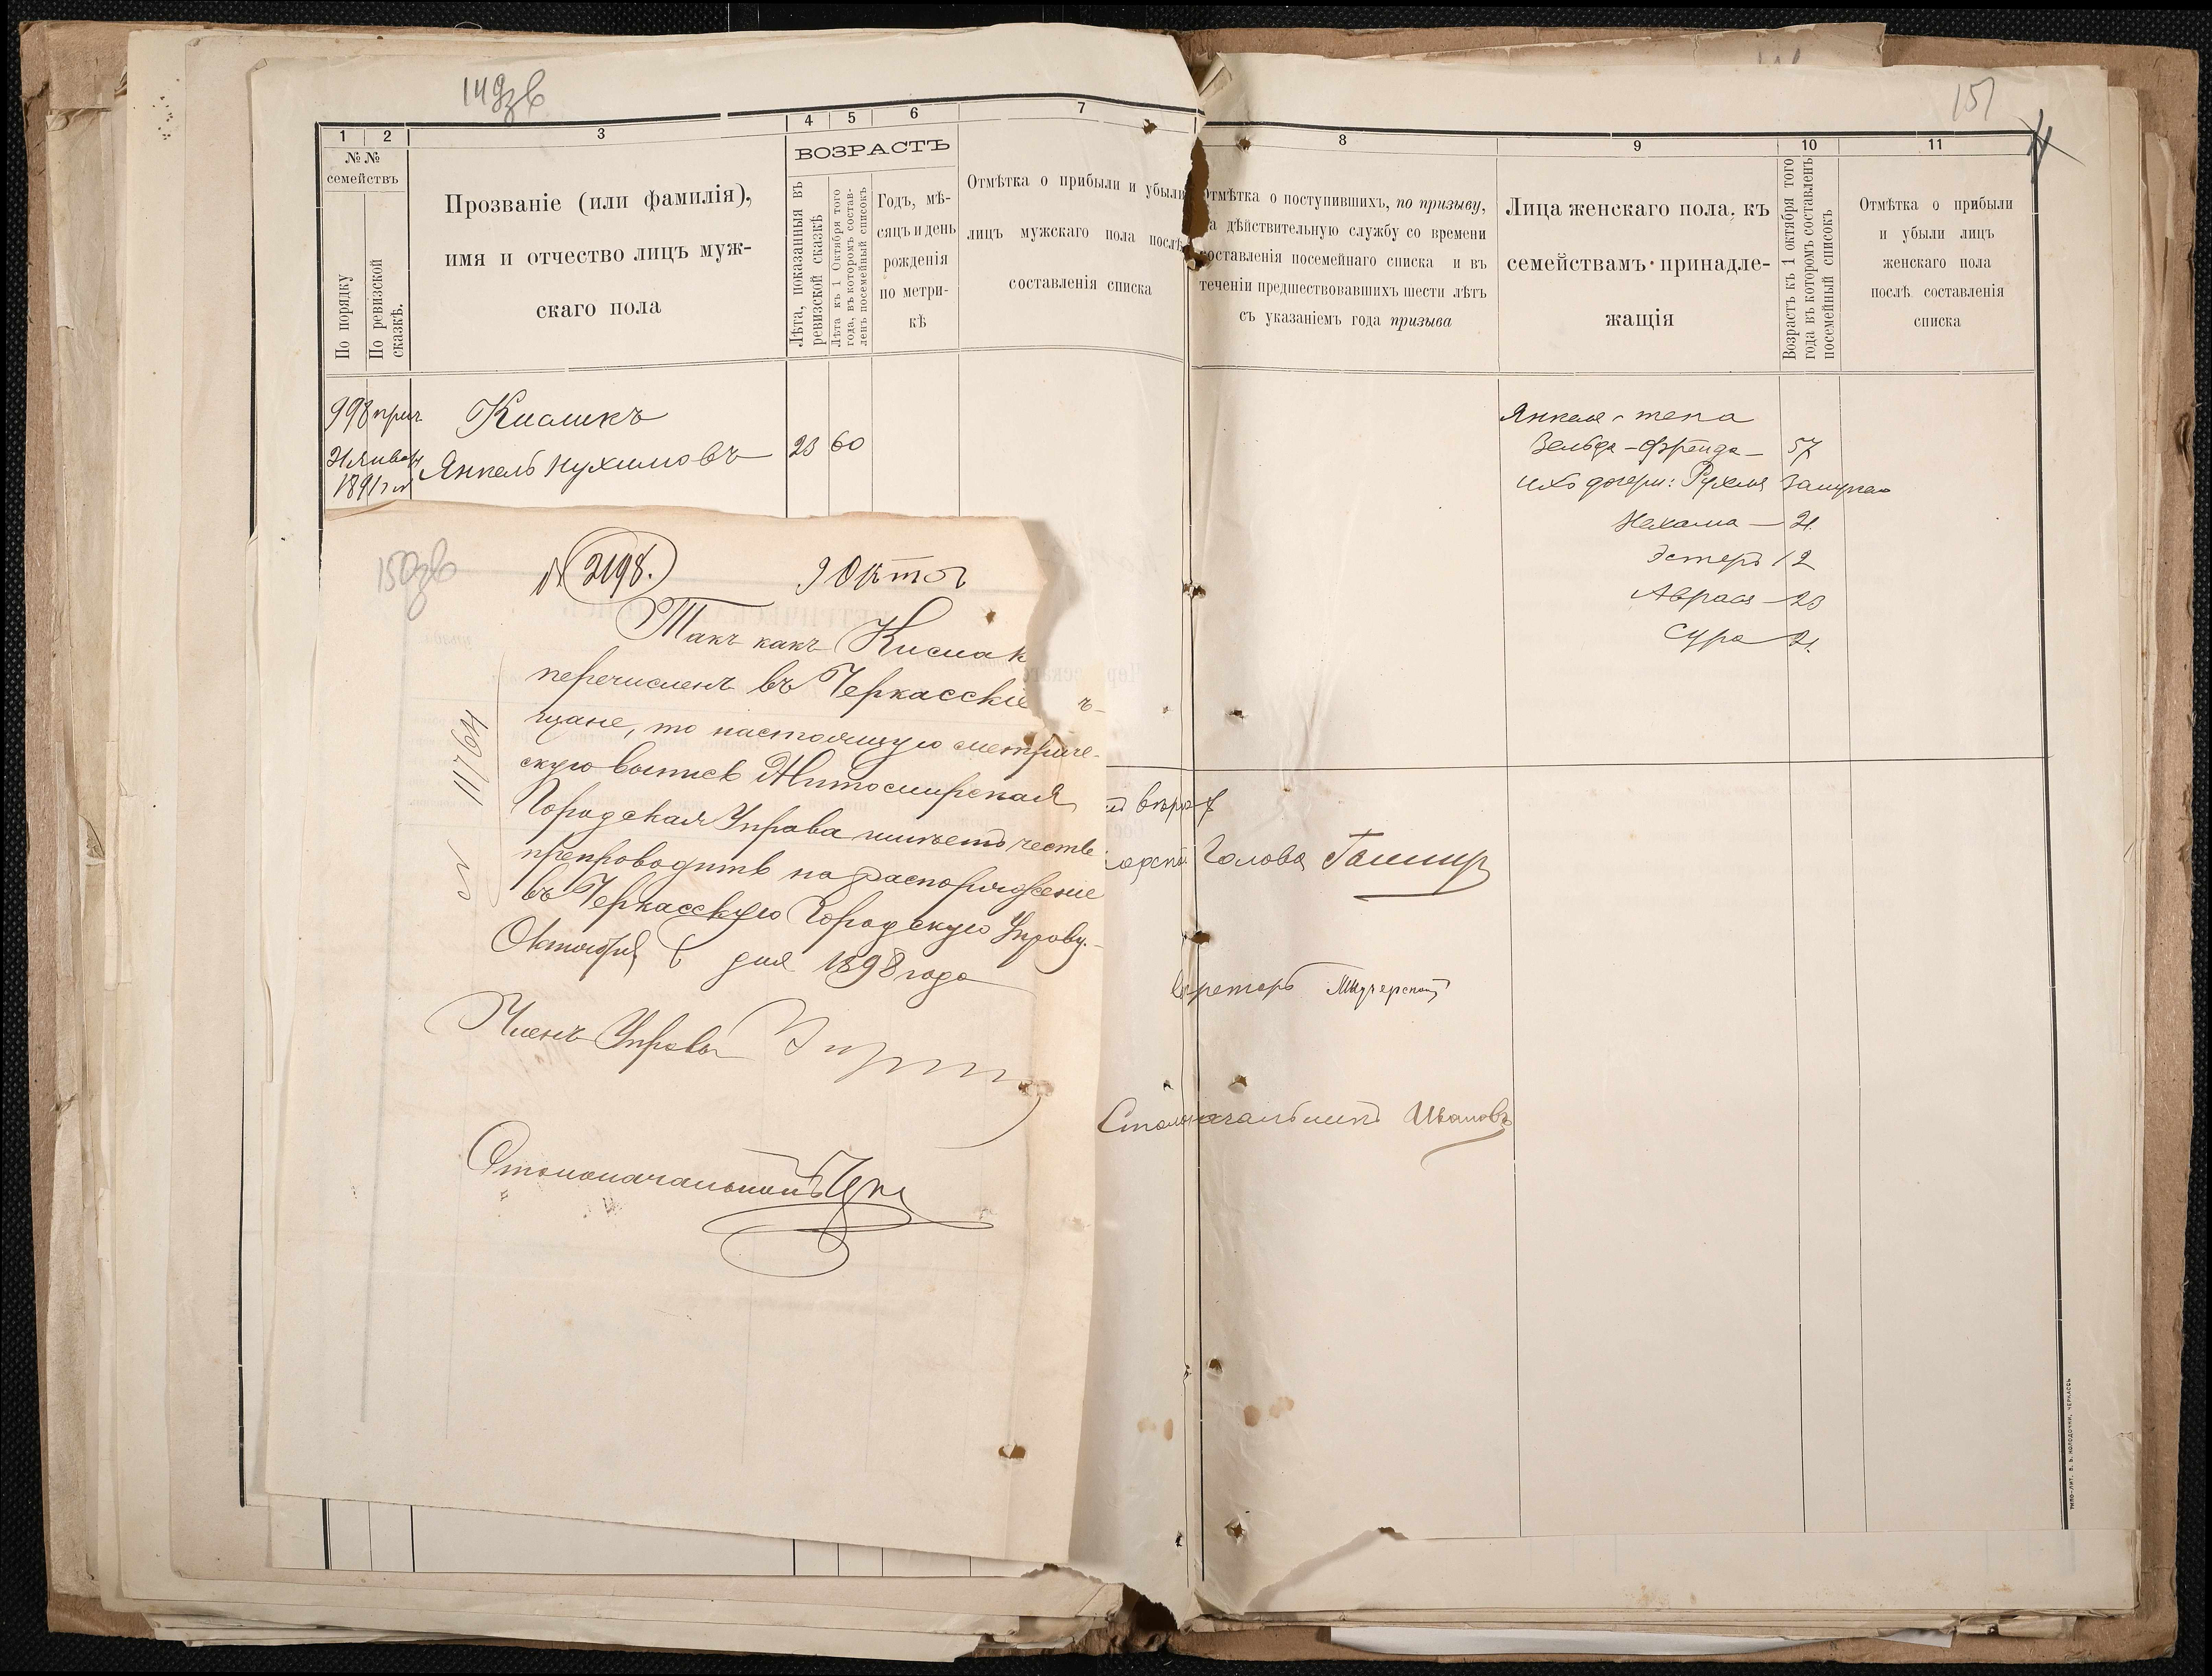 149зв
1 2 3 4 5 6 7
№ №
семействъ
По порядку
По ревизской
сказкѣ.
Прозваніе (или фамилія),
имя и отчество лицъ муж-
скаго пола
ВОЗРАСТЪ
Лѣта, показанныя въ
ревизской сказкѣ
Лѣта къ 1 Октября того
года, въ которомъ состав-
ленъ посемейный списокъ
Годъ, мѣ-
сяцъ и день
рожденія
по метри-
кѣ
Отмѣтка о прибыли и убыли
лицъ мужскаго пола послѣ
составленія списка
998 прич
Янкель Нухимовъ 23 60
1891
150зв
№ 2198. 9 Октоб
Такъ какъ Кислик
перечисленъ въ Черкасскіе
щане, то настоящую метриче-
скую выпись Житомирская
Городская Управа имѣетъ честь
препроводить на распоряженіе
въ Черкасскую Городскую Управу.
Октября 6 дня 1898 года
№ 11764
Членъ Управы
Столоначальникъ
151
8 9 10 11
Отмѣтка о поступившихъ, по призыву,
на дѣйствительную службу со времени
составленія посемейнаго списка и въ
теченіи предшествовавшихъ шести лѣтъ
съ указаніемъ года призыва
Лица женскаго пола, къ
семействамъ принадле-
жащія
Возрастъ къ 1 октября того
года въ которомъ составленъ
посемейный списокъ
Отмѣтка о прибыли
и убыли лицъ
женскаго пола
послѣ составленія
списка
Янкеля жена
Зельда-Фрейда — 57
ихъ дочери: Рухля замужем
Нехама — 21.
Эстеръ 12
Сура 21.
Голова
Секретарь
Столоначальникъ Ивановъ
ТИПО-ЛИТ. В. В. КОЛОДОЧКИ, ЧЕРКАССЫ